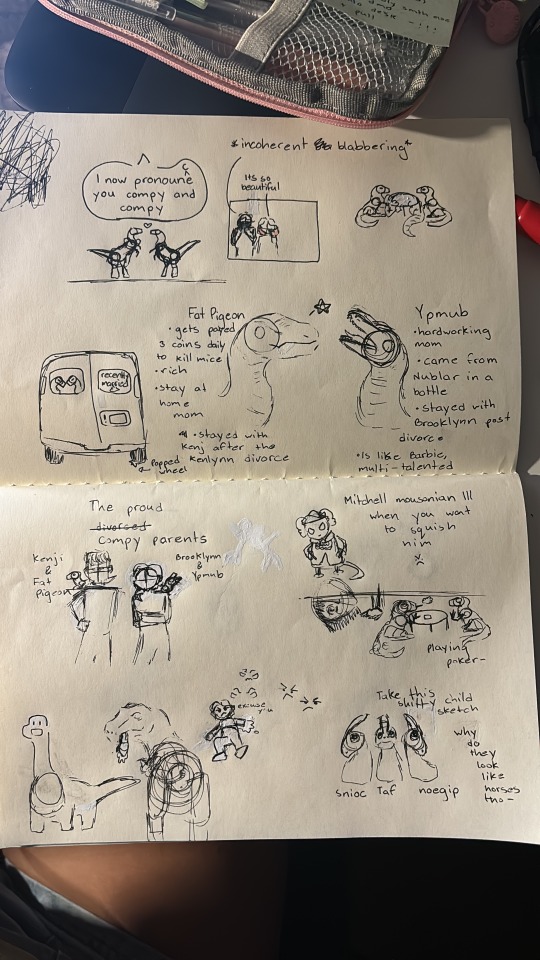 *incoherent blabbering*
I now pronounce
you compy and
compy
Its so
beautiful
Fat Pigeon
• gets payed
3 coins daily
to kill mice
• rich
• stay at
home
mom
• stayed with
kenj after the
kenlynn divorce
Ypmub
• hardworking
mom
• came from
Nublar in a
bottle
• stayed with
Brooklynn post
divorce
• Is like Barbie,
multi-talented
recently
married
popped
wheel
The proud
diversed
compy parents
Kenji
&
Fat
Pigeon
Brooklynn
&
Ypmub
Mitchell mousonian III
when you want
to squish
him
playing
poker-
excuse
you
Take this
shitty child
sketch
why
do
they
look
like
horses
tho-
snioc Taf noegip